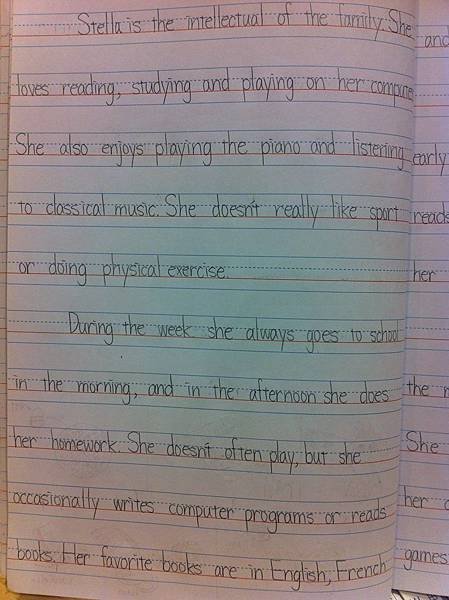 Stella is the intellectual of the family. She
loves reading, studying and playing on her computer
She also enjoys playing the piano and listening
to classical music. She doesn't really like sport
or doing physical exercise.
During the week she always goes to school
in the morning, and in the afternoon she does
her homework. She doesn't often play, but she
occasionally writes computer programs or reads
books. Her favorite books are in English, French
and
early
reads
her
the
She
her
games